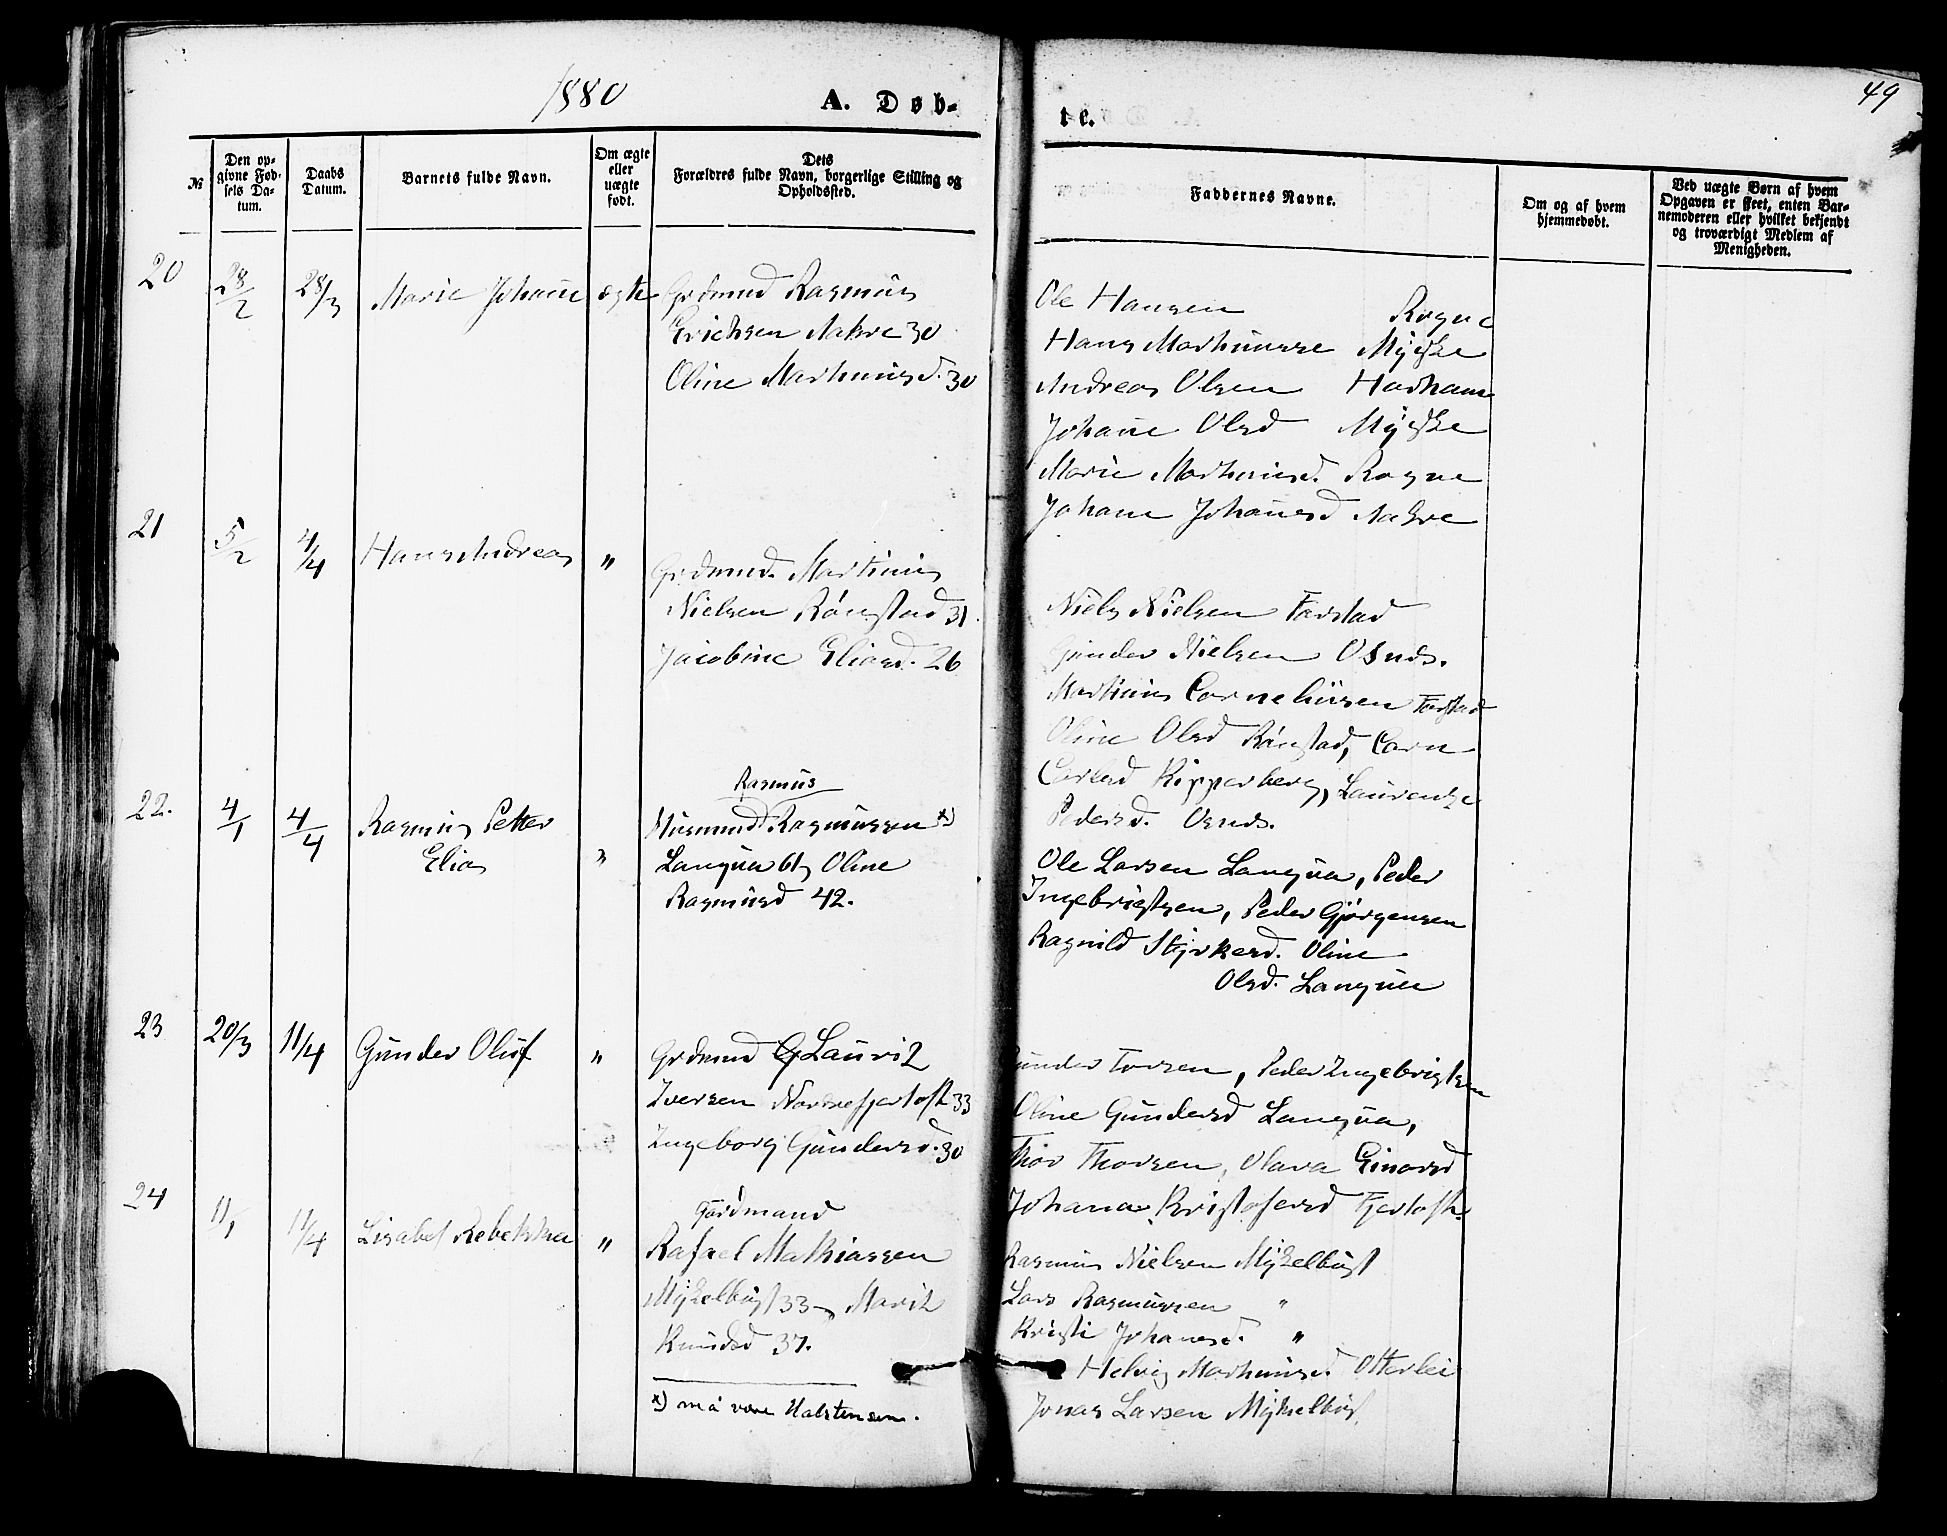 1880
A. Døb-
te.
49
№
Den op-
givne Fød-
sels Da-
tum.
Daabs
Datum.
Barnets fulde Navn.
Om ægte
eller
uægte
født.
Dets
Forældres fulde Navn, borgerlige Stilling og
Opholdssted.
Faddernes Navne.
Om og af hvem
hjemmedøbt.
Ved uægte Børn af hvem
Opgaven er skeet, enten Bar-
nemoderen eller hvilket bekjendt
og troværdigt Medlem af
Menigheden.
20 28/2 28/3 Marie Johane ægte Grdmnd Rasmus
Erichsen Nakre 30
Oline Mathiusd. 30
Ole Hansen Rogne
Hans Mathiusse Myske
Andreas Olsen Harham
Johane Olsd Myske
Marie Mathiusd. Rogne
Johane Johansd Nakre
21 5/2 4/4 Hans Andreas " Grdmnd. Martinus
Nielsen Rönstad 31.
Jacobine Eliasd. 26
Niels Nielsen Farstad
Gunder Nielsen Osnes.
Martinus Corneliusen Farstad
Oline Olsd Rönstad, Carn
Carlsd Kipperberg, Laurentse
Pedersd. Osnes.
22. 4/1 4/4 Rasmus Petter
Elias "
Rasmus
Husmnd Rasmussen x)
Langva 61, Oline
Rasmusd 42.
Ole Larsen Langva, Peder
Ingebrigtsen, Peder Gjørgensen
Ragnild Styrkersd. Oline
Olsd. Langva
23 20/3 11/4 Gunder Oluf " Grdmnd Lauritz
Iversen Nordrefjertoft 33
Ingeborg Gundersd. 30
Gunder Torsen, Peder Ingebrigtsen
Oline Gundersd Langva,
Thor Thorsen, Olava Einarsd
Johana Kristofersd Fjertoft.
24 11/1 11/4 Lisabet Rebekka "
Gårdmand
Rafael Mathiassen
Mykelbust 33, Marit
Knudsd 37.
Rasmus Nielsen Mykelbust
Lars Rasmussen "
Kristi Johansd. "
Helvig Mathiusd. Otterlei
Jonas Larsen Mykelbust
x) må være Halstensen.